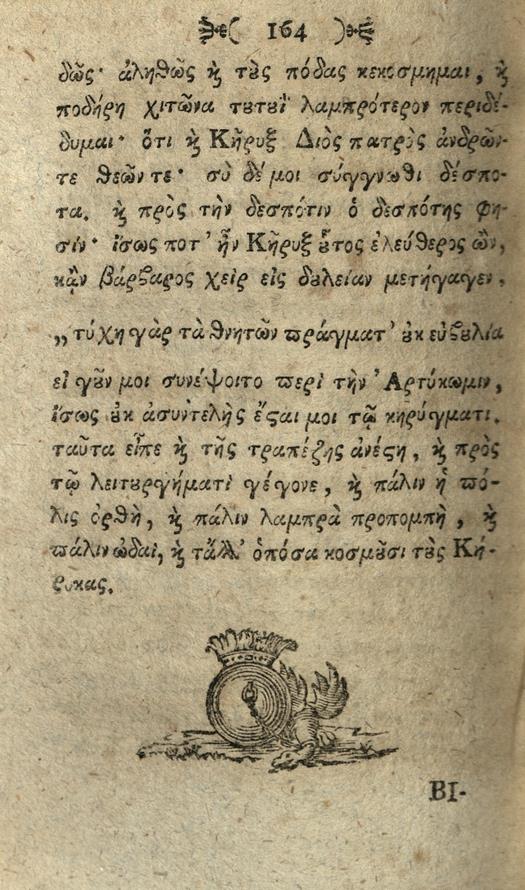 164
δῶς· ἀληθῶς ϗ̀ τȣ̀ς πόδας κεκόσμημαι, ϗ̀
ποδήρη χιτῶνα τȣτȣῒ λαμπρότερον περιδέ-
δυμαι· ὅτι ϗ̀ Κῆρυξ Διὸς πατρὸς ἀνδρῶν-
τε θεῶν τε· σὺ δέ μοι σύγγνωθι δέσπο-
τα. ϗ̀ πρὸς τὴν δεσπότιν ὁ δεσπότης φη-
σίν· ἴσως ποτ' ἦν Κῆρυξ ȣ̃τος ἐλεύθερος ὤν,
κἂν βάρβαρος χεὶρ εἰς δȣλείαν μετήγαγεν,
„τύχη γὰρ τὰ θνητῶν πράγματ' ȣ̓κ εὐβȣλία
εἰ γȣ̃ν μοι συνέψοιτο περὶ τὴν 'Αρτύκωμιν,
ἴσως ȣ̓κ ἀσυντελὴς ἔϛαι μοι τῷ κηρύγματι.
ταῦτα εἶπε ϗ̀ τῆς τραπέζης ἀνέϛη, ϗ̀ πρὸς
τῷ λειτȣργήματι γέγονε, ϗ̀ πάλιν ἡ πό-
λις ὀρθὴ, ϗ̀ πάλιν λαμπρὰ προπομπὴ, ϗ̀
πάλιν ᾠδαὶ, ϗ̀ τἄλλ' ὁπόσα κοσμȣ̃σι τȣ̀ς Κή-
ρυκας.
ΒΙ-